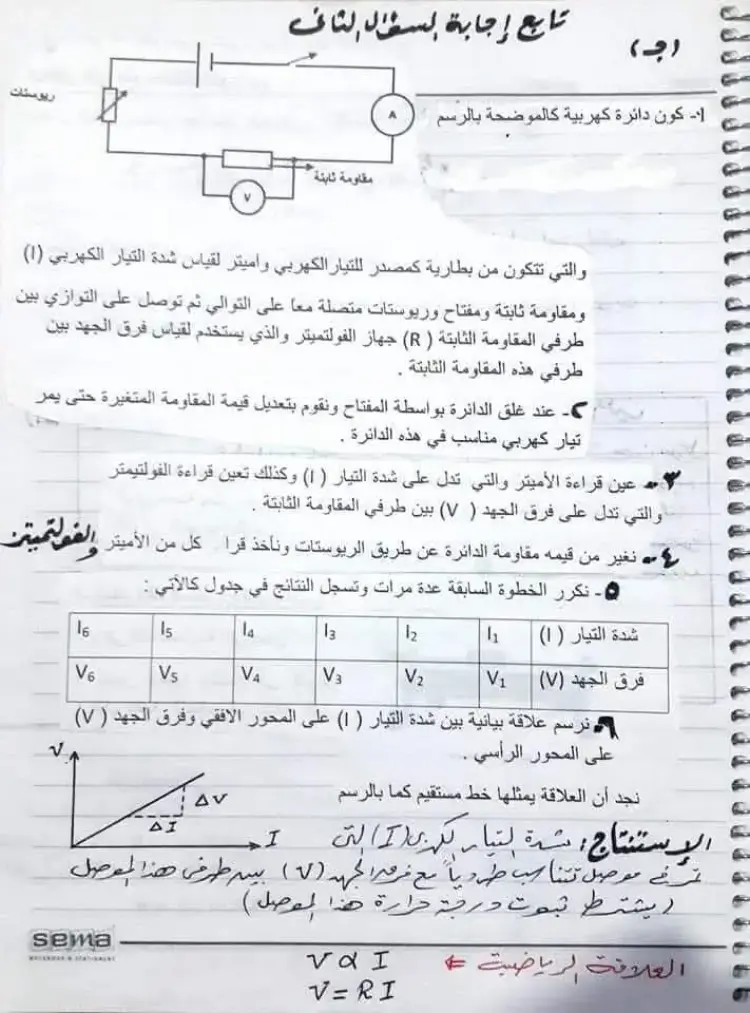 تابع إجابة السؤال الثاني
(جـ)
١- كون دائرة كهربية كالموضحة بالرسم
ريوستات
A
مقاومة ثابتة
V
والتي تتكون من بطارية كمصدر للتيار الكهربي واميتر لقياس شدة التيار الكهربي (I)
ومقاومة ثابتة ومفتاح وريوستات متصلة معا على التوالي ثم توصل على التوازي بين
طرفي المقاومة الثابتة ( R) جهاز الفولتميتر والذي يستخدم لقياس فرق الجهد بين
طرفي هذه المقاومة الثابتة .
٢- عند غلق الدائرة بواسطة المفتاح ونقوم بتعديل قيمة المقاومة المتغيرة حتى يمر
تيار كهربي مناسب في هذه الدائرة .
٣- عين قراءة الأميتر والتي تدل على شدة التيار ( I) وكذلك تعين قراءة الفولتيمتر
والتي تدل على فرق الجهد ( V) بين طرفي المقاومة الثابتة .
٤- نغير من قيمه مقاومة الدائرة عن طريق الريوستات ونأخذ قرا كل من الأميتر والفولتميتر
٥- نكرر الخطوة السابقة عدة مرات وتسجل النتائج في جدول كالآتي :
شدة التيار ( I) I1 I2 I3 I4 I5 I6
فرق الجهد (V) V1 V2 V3 V4 V5 V6
٦- نرسم علاقة بيانية بين شدة التيار ( I) على المحور الافقي وفرق الجهد ( V)
على المحور الرأسي .
نجد أن العلاقة يمثلها خط مستقيم كما بالرسم
V
ΔV
ΔI
I
الإستنتاج: شدة التيار الكهربى (I) التى
تمر فى موصل تتناسب طردياً مع فرق الجهد (V) بين طرفى هذا الموصل
(يشترط ثبوت درجة حرارة هذا الموصل)
sema
العلاقة الرياضية ⇐
V α I
V = R I